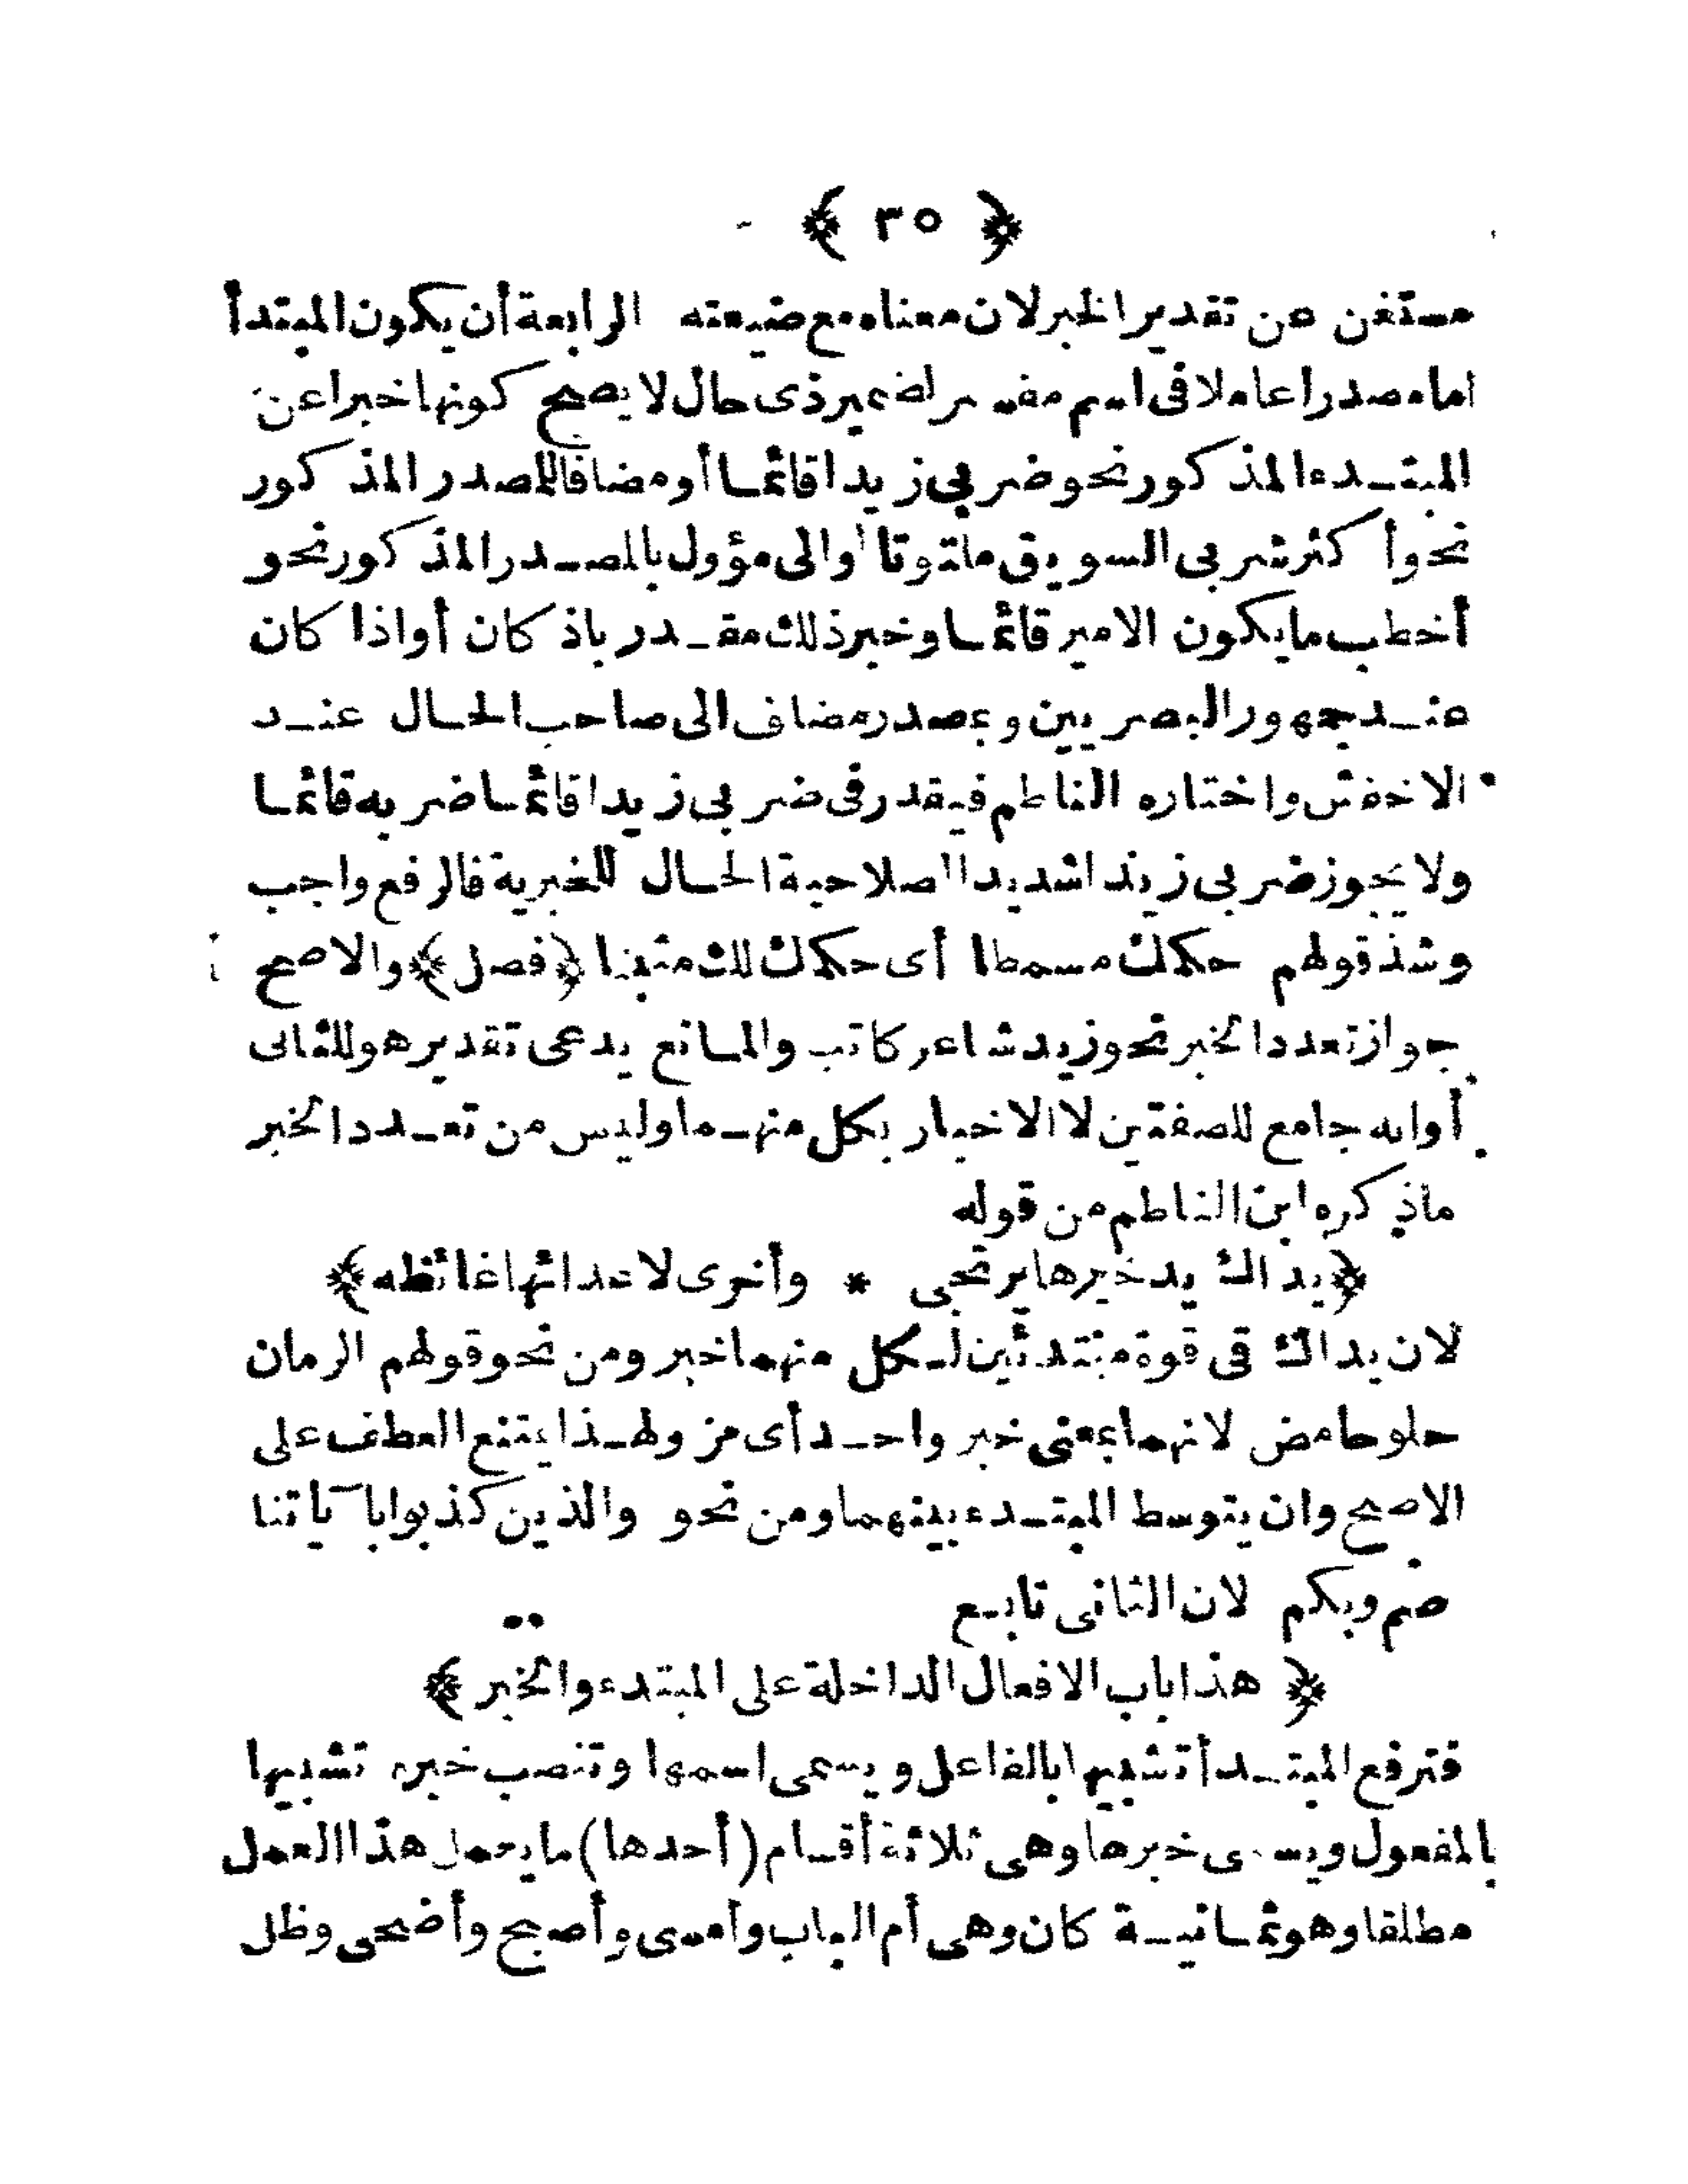 ﴿ ٣٥ ﴾
مستغن عن تقدير الخبر لان معناه مع ضيعته الرابعة أن يكون المبتدأ
اما مصدرا عاملا فى اسم مفسر لضمير ذى حال لا يصح كونها خبرا عن
المبتدء المذكور نحو ضربى زيدا قائما أو مضافا للمصدر المذكور
نحو أكثر شربى السويق ملتوتا أوالى مؤول بالمصدر المذكور نحو
أخطب ما يكون الامير قائما وخبر ذلك مقدر باذ كان أو اذا كان
عند جمهور البصريين وبمصدر مضاف الى صاحب الحال عند
الاخفش واختاره الناظم فيقدر فى ضربى زيدا قائما ضربه قائما
ولا يجوز ضربى زيدا شديدا لصلاحية الحال للخبرية فالرفع واجب
وشذ قولهم حكمك مسمطا أى حكمك لك مثبتا ﴿فصل﴾ والاصح
جواز تعدد الخبر نحو زيد شاعر كاتب والمانع يدعى تقدير هو للثانى
أو انه جامع للصفتين لا الاخبار بكل منهما وليس من تعدد الخبر
ما ذكره ابن الناظم من قوله
﴿يداك يد خيرها يرتجى * وأخرى لاعدائها غائظه﴾
لان يداك فى قوة مبتدئين لكل منهما خبر ومن نحو قولهم الرمان
حلو حامض لانهما بمعنى خبر واحد أى مز ولهذا يمتنع العطف على
الاصح وان يتوسط المبتدء بينهما ومن نحو والذين كذبوا باآياتنا
صم وبكم لان الثانى تابع
﴿ هذا باب الافعال الداخلة على المبتدء والخبر ﴾
فترفع المبتدأ تشبيها بالفاعل ويسمى اسمها وتنصب خبره تشبيها
بالمفعول ويسمى خبرها وهى ثلاثة أقسام (أحدها) ما يعمل هذا العمل
مطلقا وهو ثمانية كان وهى أم الباب وأمسى وأصبح وأضحى وظل